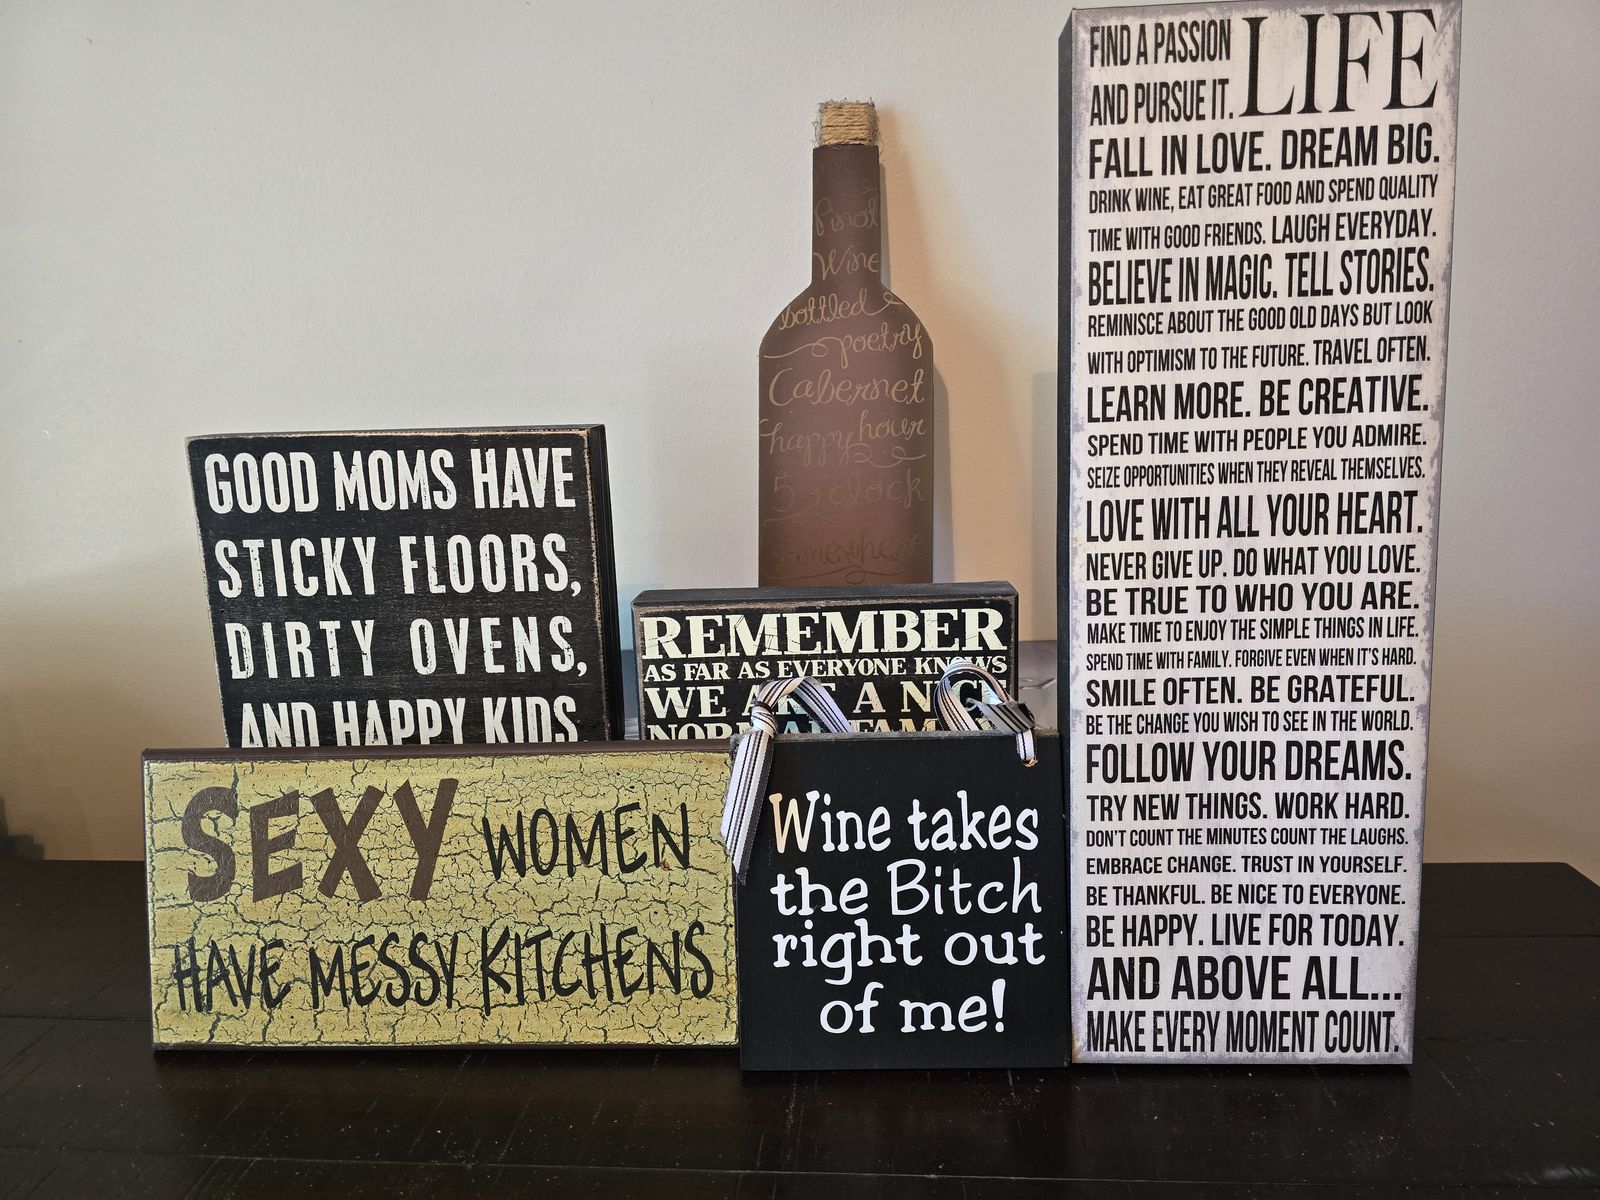 GOOD MOMS HAVE
STICKY FLOORS,
DIRTY OVENS,
AND HAPPY KIDS.
SEXY WOMEN
HAVE MESSY KITCHENS
Pinot
Wine
bottled
poetry
Cabernet
happy hour
5 o'clock
somewhere
REMEMBER
AS FAR AS EVERYONE KNOWS
WE ARE A NICE
NORMAL FAMILY
Wine takes
the Bitch
right out
of me!
FIND A PASSION
AND PURSUE IT. LIFE
FALL IN LOVE. DREAM BIG.
DRINK WINE, EAT GREAT FOOD AND SPEND QUALITY
TIME WITH GOOD FRIENDS. LAUGH EVERYDAY.
BELIEVE IN MAGIC. TELL STORIES.
REMINISCE ABOUT THE GOOD OLD DAYS BUT LOOK
WITH OPTIMISM TO THE FUTURE. TRAVEL OFTEN.
LEARN MORE. BE CREATIVE.
SPEND TIME WITH PEOPLE YOU ADMIRE.
SEIZE OPPORTUNITIES WHEN THEY REVEAL THEMSELVES.
LOVE WITH ALL YOUR HEART.
NEVER GIVE UP. DO WHAT YOU LOVE.
BE TRUE TO WHO YOU ARE.
MAKE TIME TO ENJOY THE SIMPLE THINGS IN LIFE.
SPEND TIME WITH FAMILY. FORGIVE EVEN WHEN IT'S HARD.
SMILE OFTEN. BE GRATEFUL.
BE THE CHANGE YOU WISH TO SEE IN THE WORLD.
FOLLOW YOUR DREAMS.
TRY NEW THINGS. WORK HARD.
DON'T COUNT THE MINUTES COUNT THE LAUGHS.
EMBRACE CHANGE. TRUST IN YOURSELF.
BE THANKFUL. BE NICE TO EVERYONE.
BE HAPPY. LIVE FOR TODAY.
AND ABOVE ALL...
MAKE EVERY MOMENT COUNT.